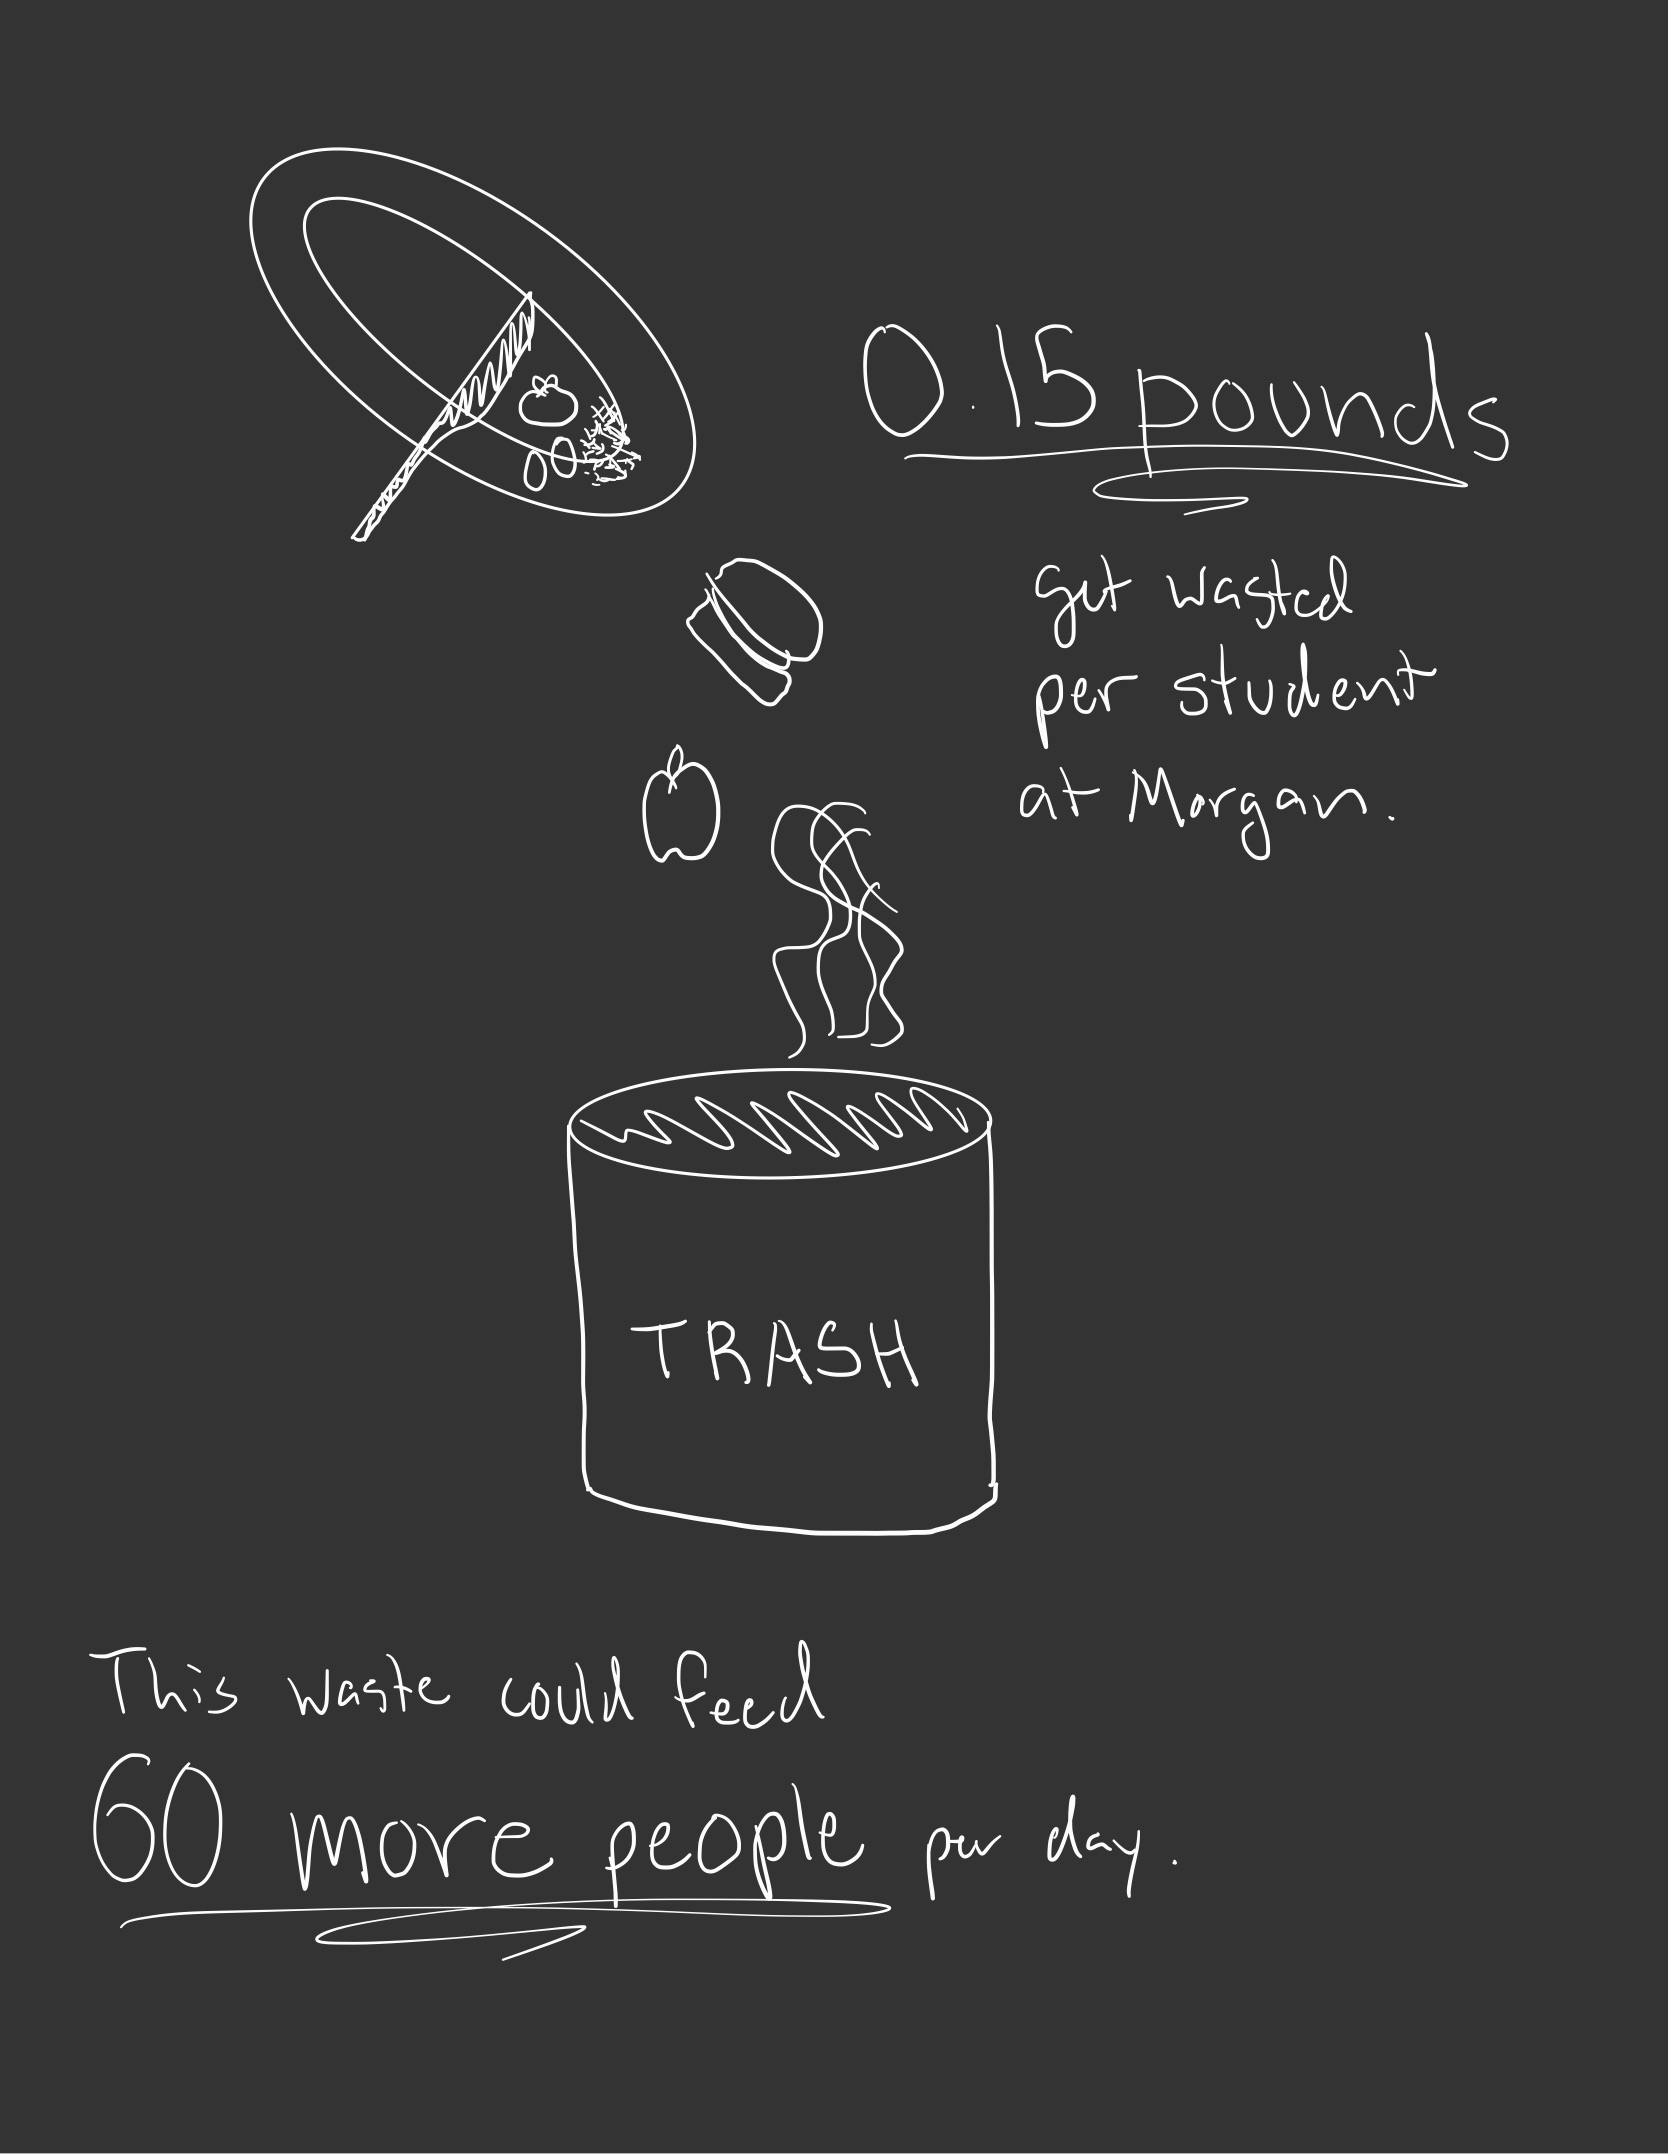 0.15 pounds
get wasted
per student
at Morgan.
TRASH
This waste could feed
60 more people per day.